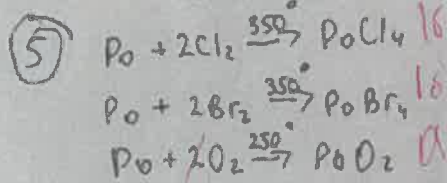 ⑤ Po + 2Cl₂ —350°→ PoCl₄ 1б
Po + 2Br₂ —350°→ PoBr₄ 1б
Po + 2O₂ —250°→ PoO₂